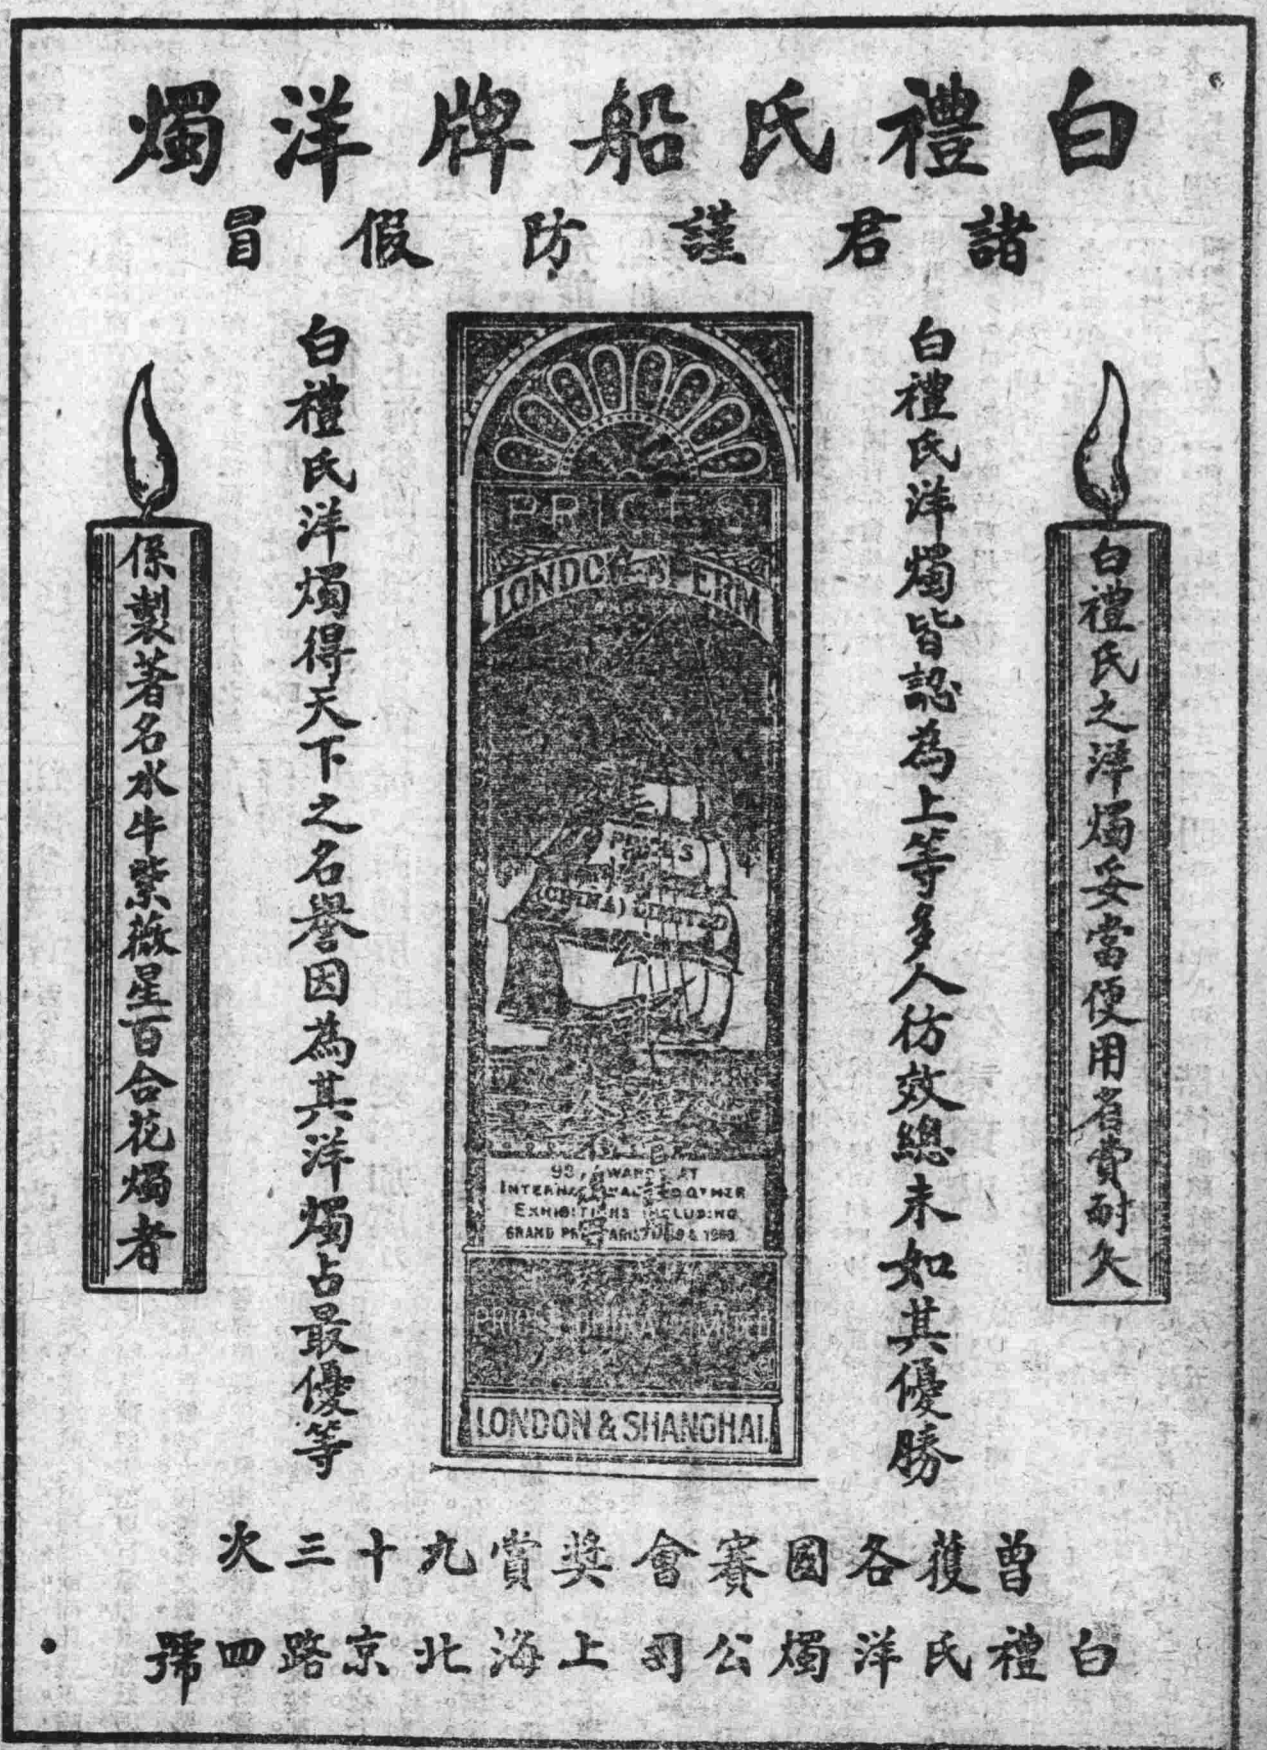 白禮氏船牌洋燭
諸君謹防假冒
白禮氏之洋燭妥當便用省費耐久
白禮氏洋燭皆認為上等多人彷效總未如其優勝
PRICE'S
LONDON SPERM
PRICE'S
(CHINA) LIMITED
93, AWARDS AT
INTERNATIONAL AND OTHER
EXHIBITIONS INCLUDING
GRAND PRIX PARIS 1889 & 1900.
PRICE'S CHINA LIMITED
LONDON & SHANGHAI.
白禮氏洋燭得天下之名譽因為其洋燭占最優等
係製著名水牛紫薇星百合花燭者
曾獲各國賽會奬賞九十三次
白禮氏洋燭公司上海北京路四號